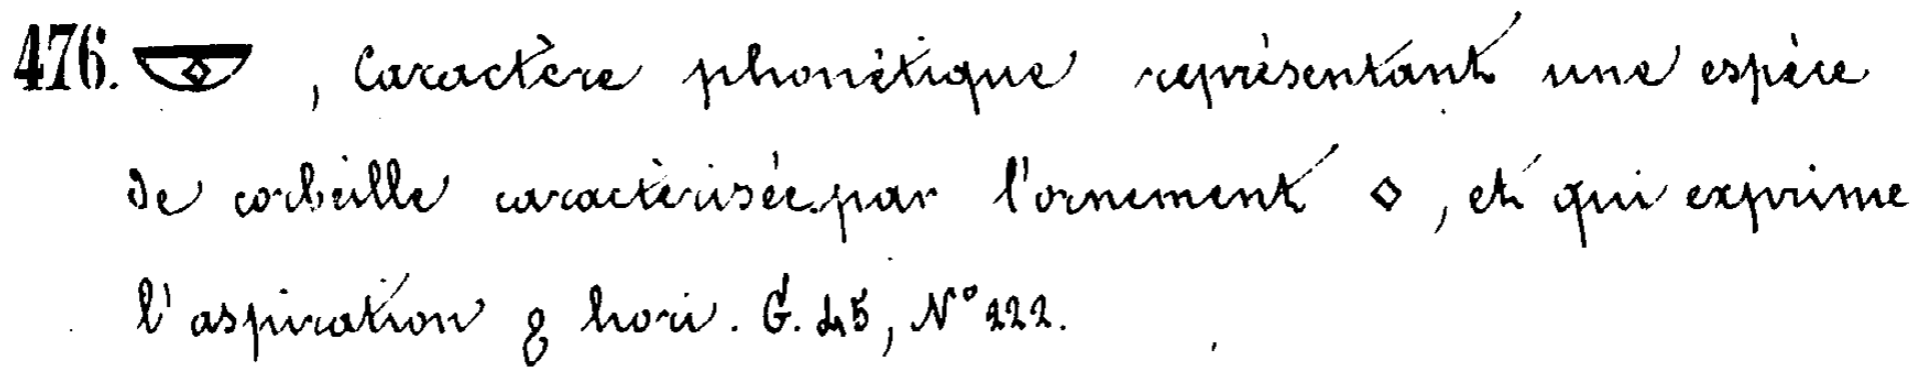 476. 𓎱, Caractère phonétique représentant une espèce
de corbeille caractèrisée par l'ornement ◇, et qui exprime
l'aspiration ϩ hori. G. 45, N° 222.